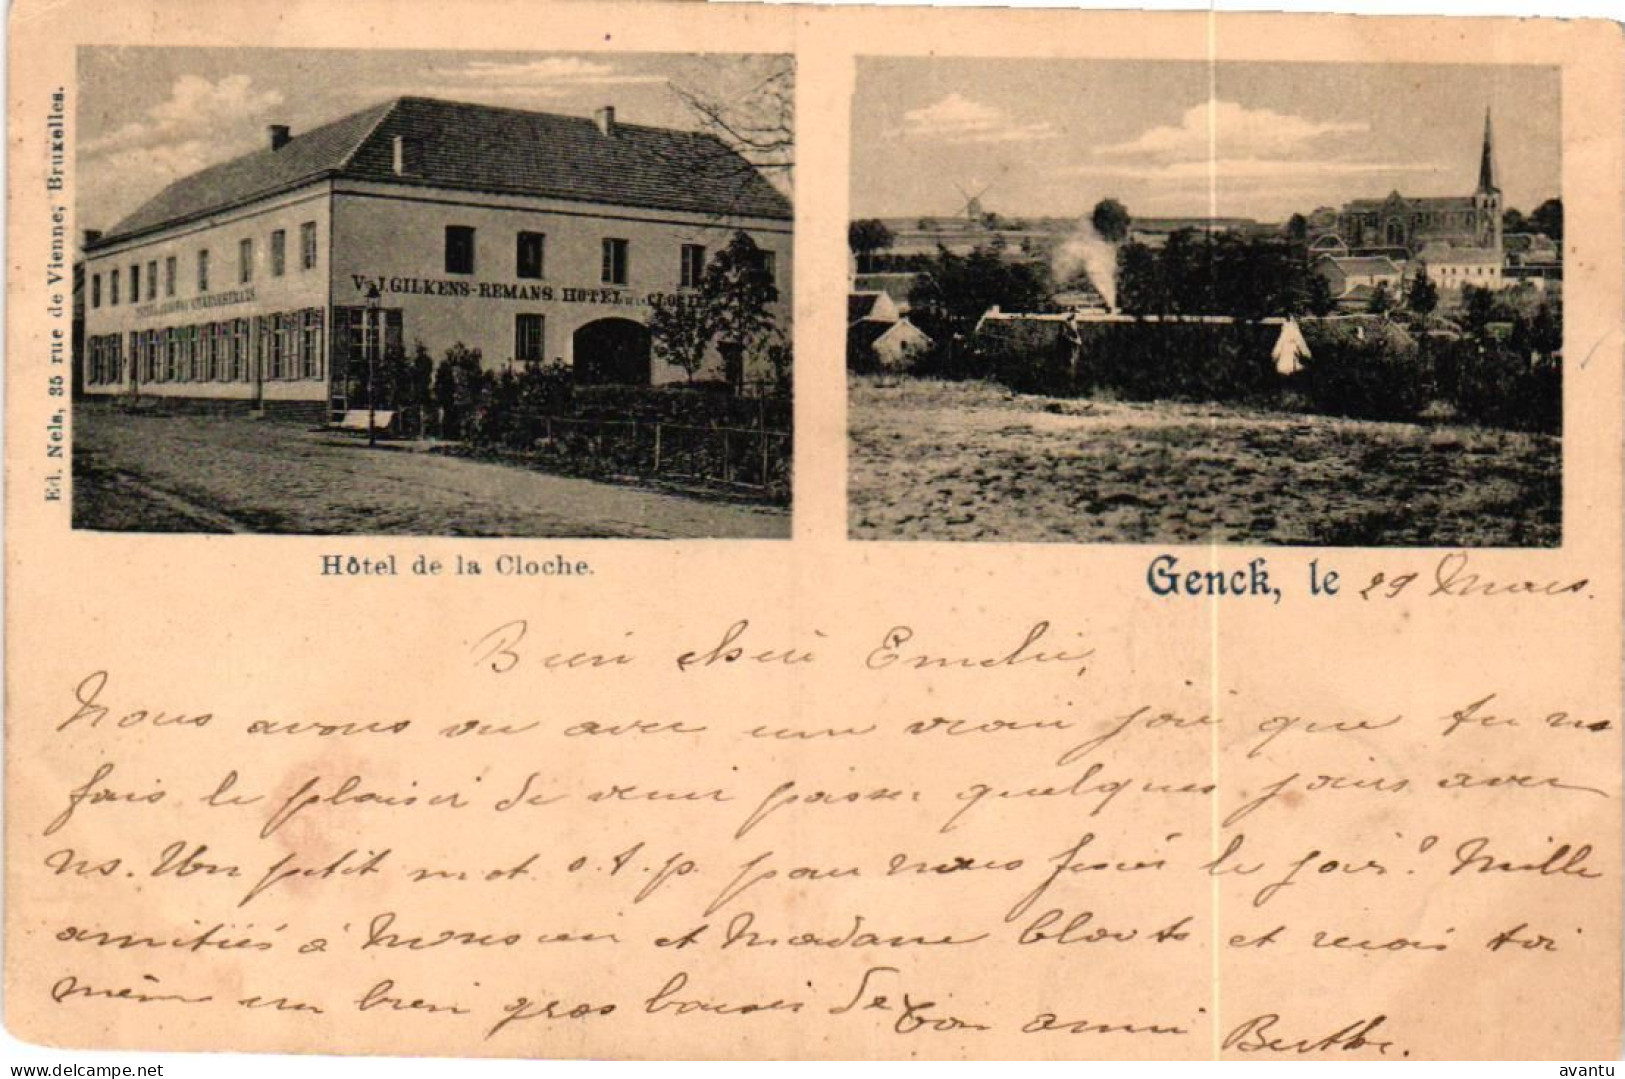 Ed. Nels, 35 rue de Vienne, Bruxelles.
Vve J. GILKENS-REMANS. HÔTEL DE LA CLOCHE
Hôtel de la Cloche.
Genck, le 29 Mars.
Bien chère Emelie,
Nous avons vu avec une vraie joie que tu ns
fais le plaisir de venir passer quelques jours avec
ns. Un petit mot s.t.p. pour nous fixer le jour? Mille
amitiés à Monsieur et Madame et reçois toi
même un bien gros baiser de ton amie Berthe.
avantu